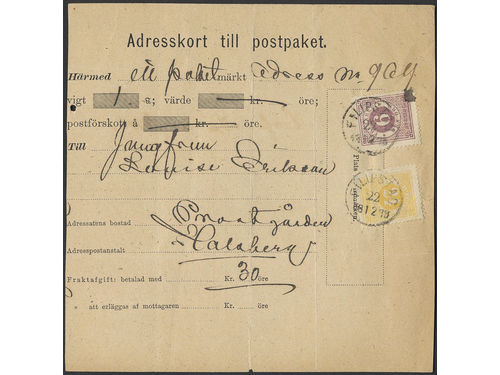 Adresskort till postpaket.
Härmed ett paket märkt adress No 904
vigt 1 ℔; värde kr. öre;
postförskott å kr. öre.
Till Jungfrun
Louise Erikson
Adressatens bostad Prostgården
Adresspostanstalt Halsberg
Fraktafgift: betalad med Kr. 30 öre
» att erläggas af mottagaren Kr. öre
FILIPSTAD
22
1881
6
Plats
frimärken.